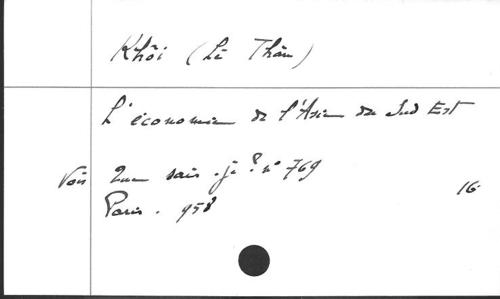 Khôi (Lê Thân)
L'économie de l'Asie du Sud Est
Voir Que sais-je? n° 769
Paris. 958
16